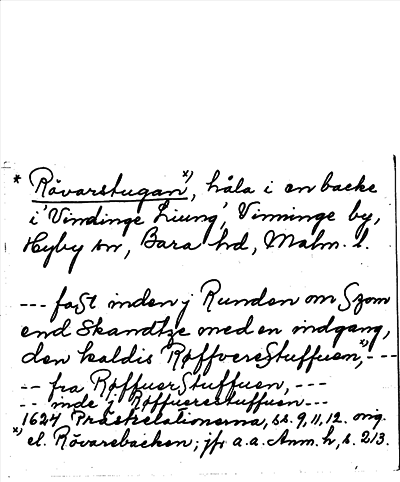 * Rövarstugan x), håla i en backe
i 'Vindinge Liung', Vinninge by,
Hyby sn, Bara hd, Malm. l.
--- faSt inden j Runden om Szom
end Skandtze med en indgang,
den kaldis RøffvereStuffuen, x) ---
-- fra RøffuerStuffuen, ---
-- inde j Røffuerestuffuen ---
1624 Prästrelationerna, ss. 9, 11, 12. orig.
x) el. Rövarebacken; jfr a.a. Anm. h, s. 213.